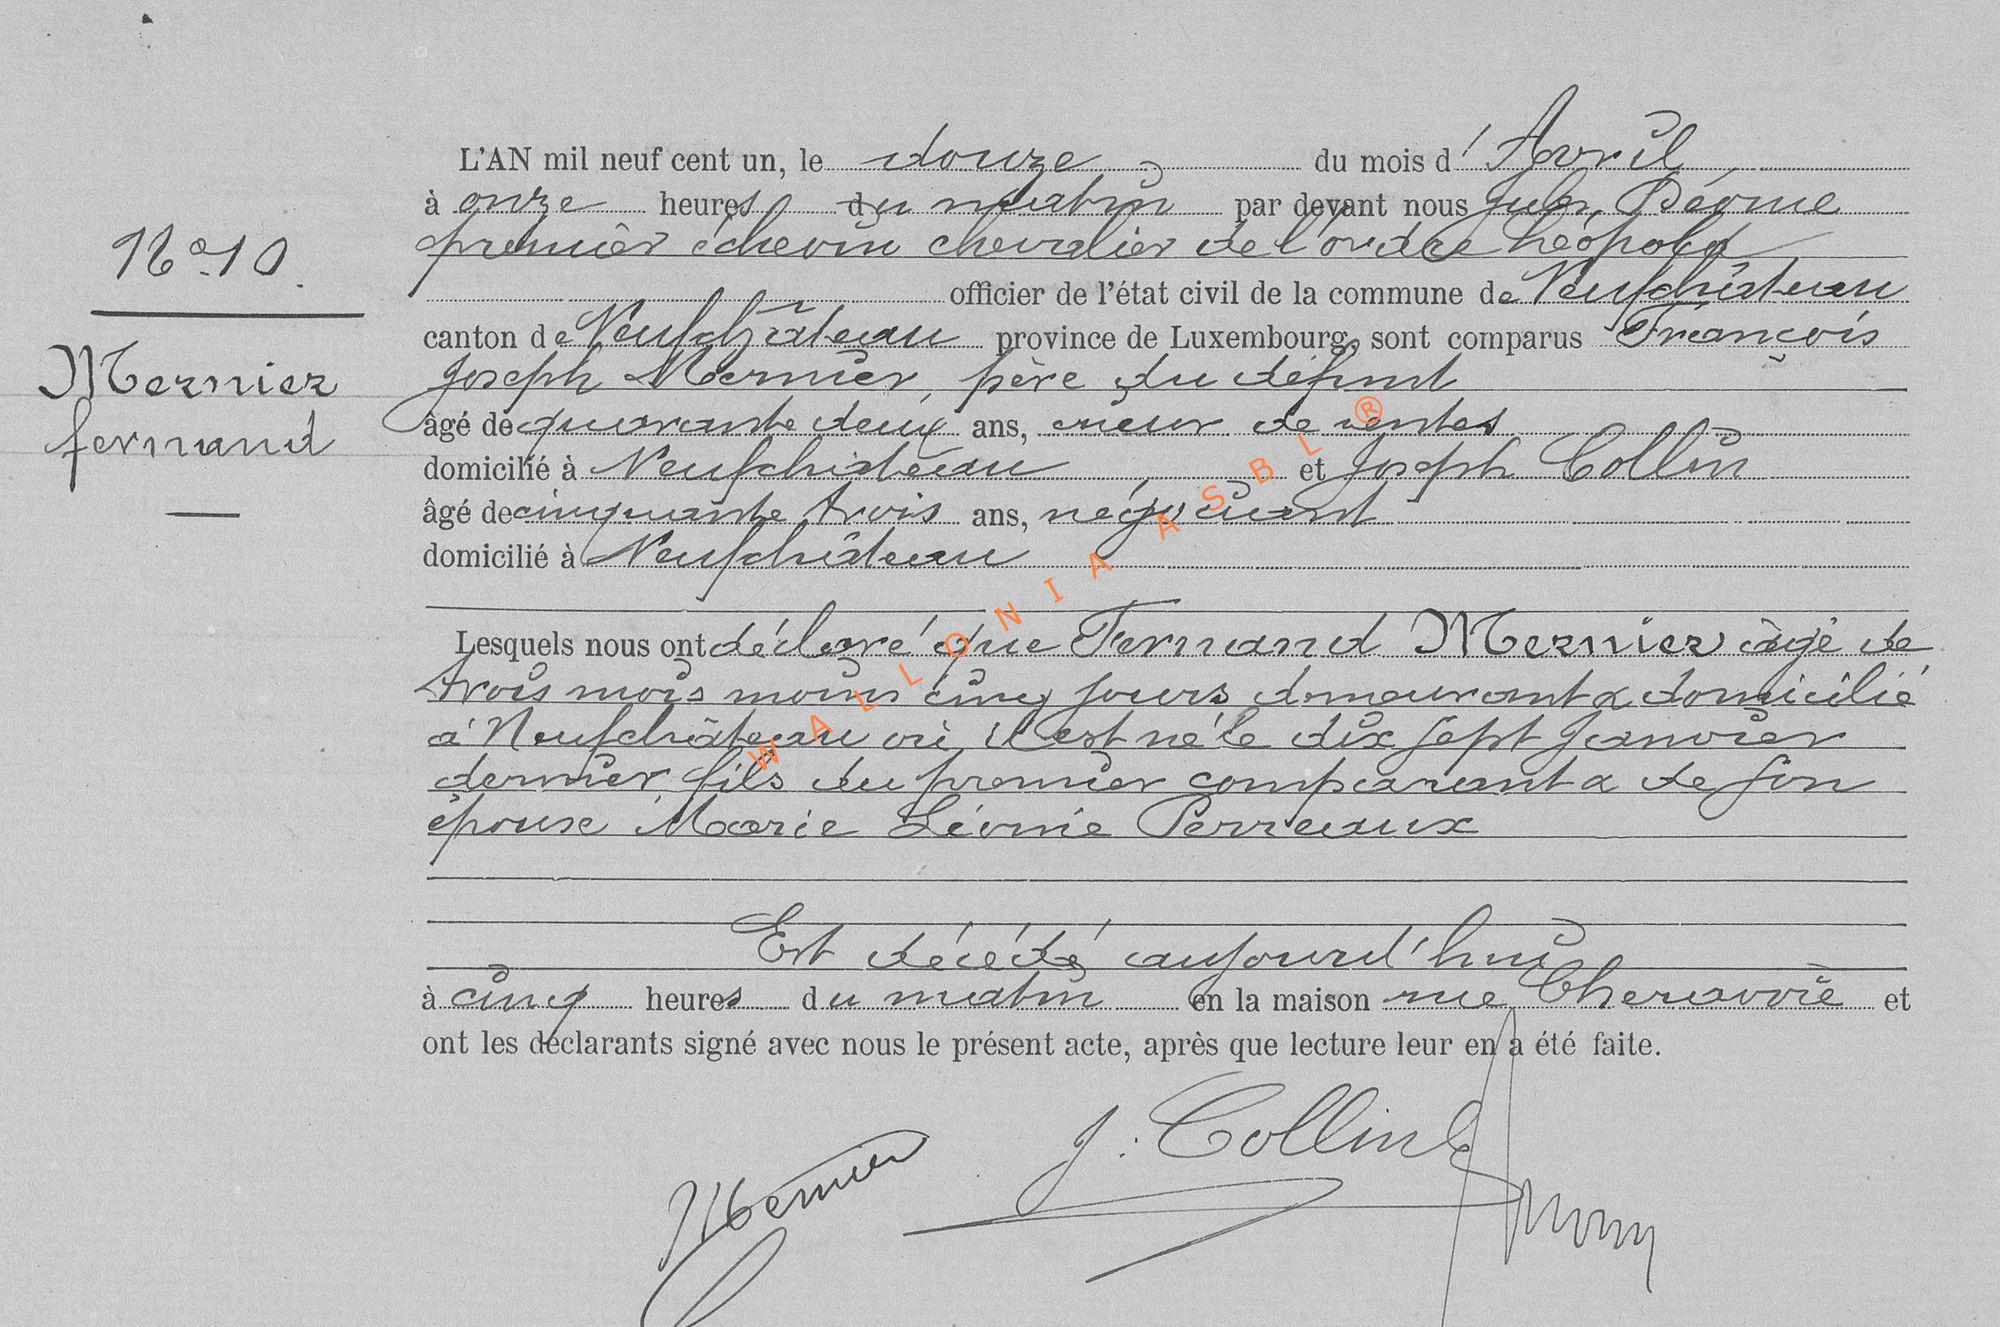 N° 10.
Mernier
fernand
L'AN mil neuf cent un, le douze du mois d'Avril
à onze heures du matin par devant nous Jules
premier échevin chevalier de l'ordre Léopold
officier de l'état civil de la commune de Neufchâteau
canton de Neufchâteau province de Luxembourg, sont comparus François
Joseph Mernier, père du défunt
âgé de quarante deux ans, crieur de ventes
domicilié à Neufchâteau et Joseph Collin
âgé de cinquante trois ans, négociant
domicilié à Neufchâteau
Lesquels nous ont déclaré que Fernand Mernier âgé de
trois mois moins cinq jours demeurant & domicilié
à Neufchâteau où il est né le dix sept Janvier
dernier fils du premier comparant & de son
épouse Marie Léonie Perreaux
Est décédé aujourd'hui
à cinq heures du matin en la maison rue et
ont les déclarants signé avec nous le présent acte, après que lecture leur en a été faite.
J. Collin
Mernier
WALLONIA ASBL ®